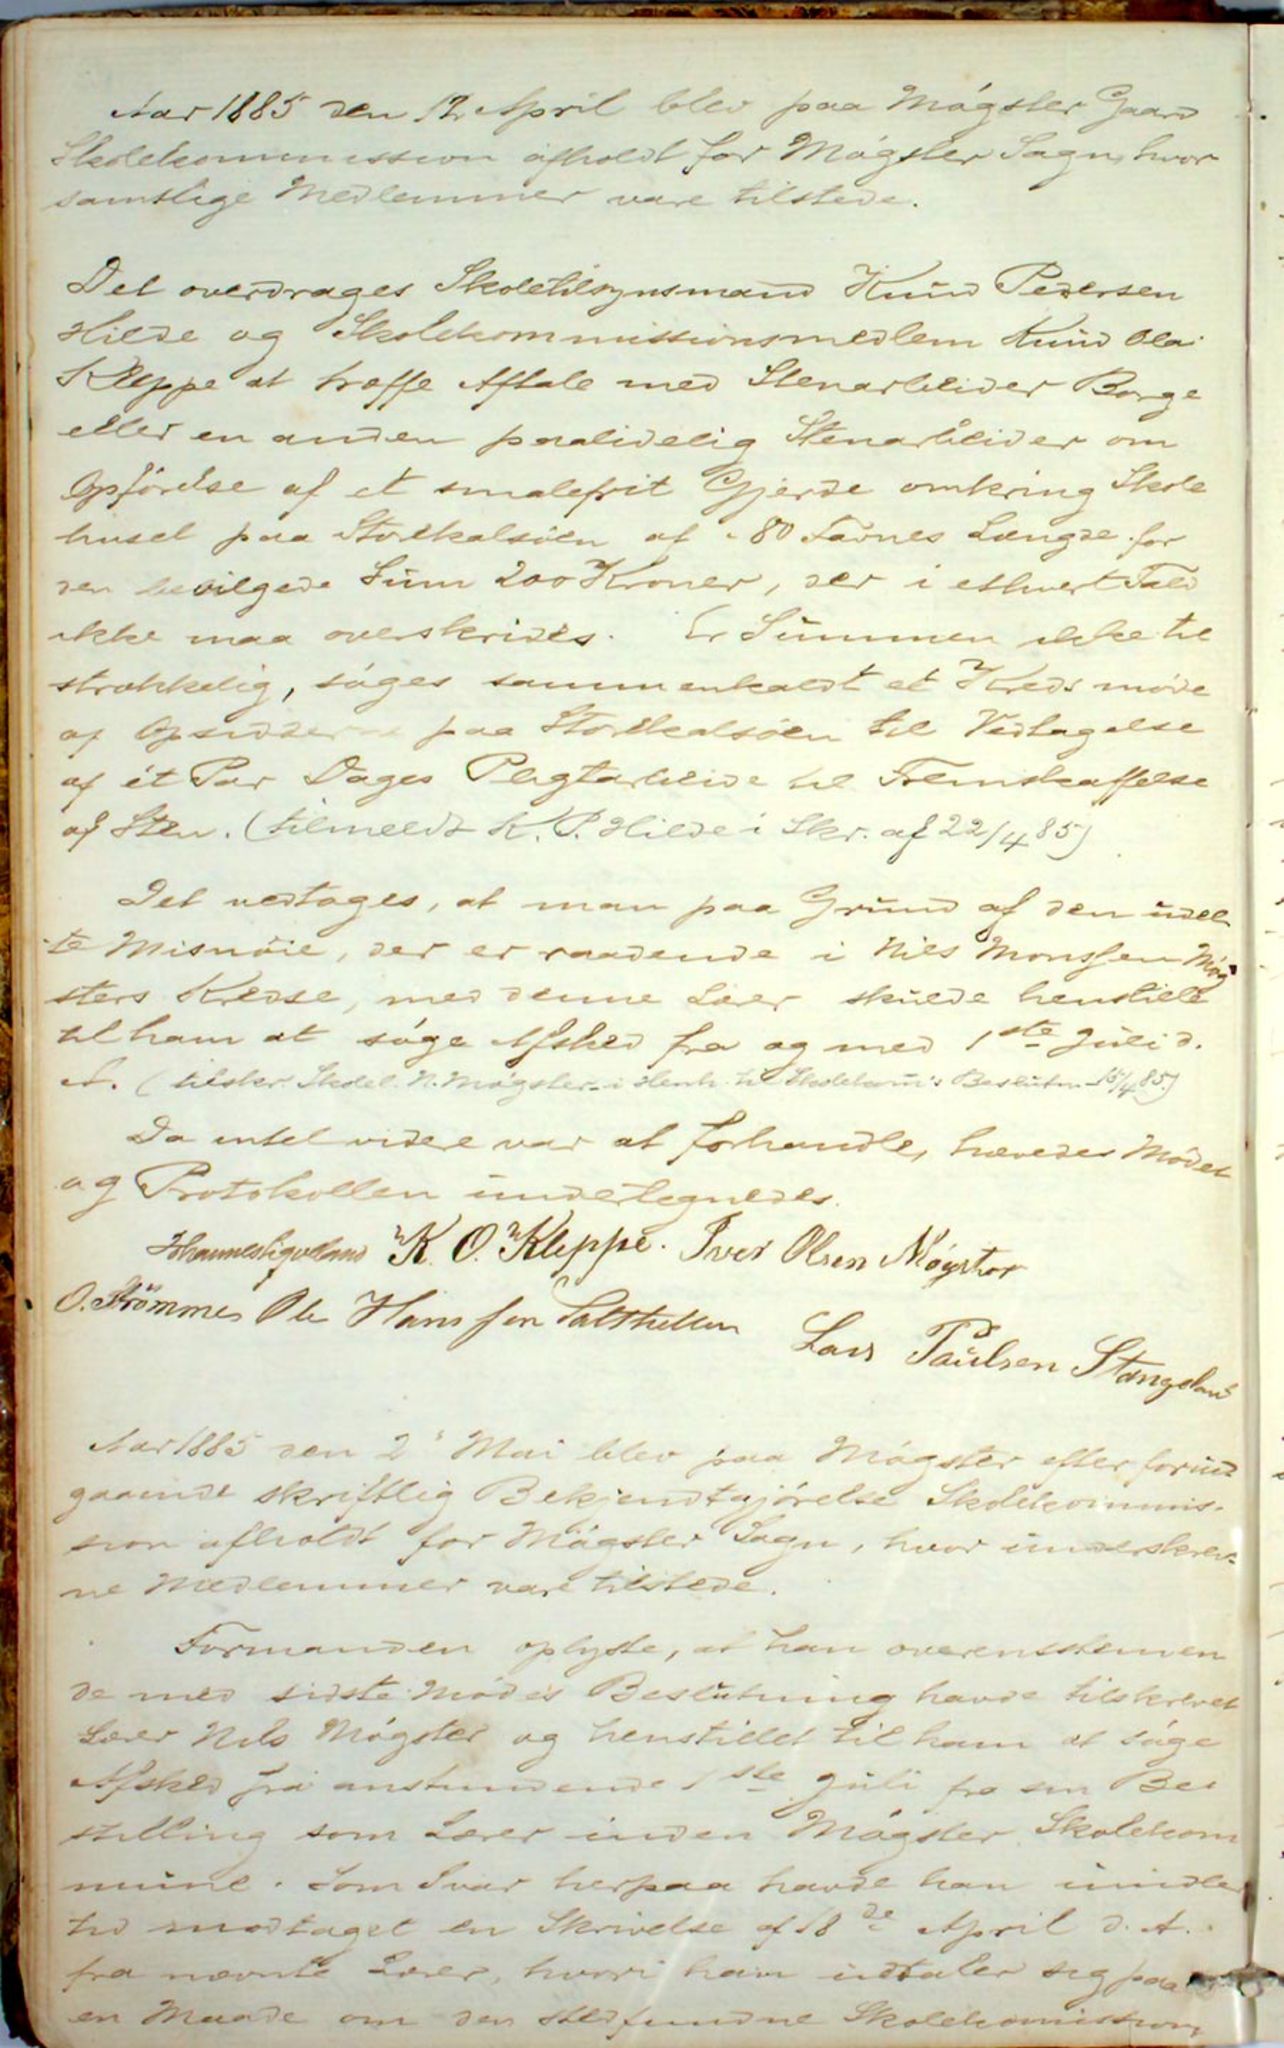 Aar 1885 den 12 April blev paa Møgster Gaard
Skolekommission afholdt for Møgster Sogn, hvor
samtlige Medlemmer vare tilstede.
Det overdrages Skoletilsynsmand Knud Pedersen
Hilde og Skolekommissionsmedlem Knud Ola
Kleppe at træffe Aftale med Stenarbeider Borge
eller en anden paalidelig Stenarbeider om
Opførelse af et smalefrit Gjerde omkring Skole
huset paa Storekalsøen af 80 Favnes Længde for
den bevilgede Sum 200 Kroner, der i ethvert Fald
ikke maa overskrides. Er Summen ikke til
strækkelig, søges sammenkaldt et Kredsmøde
af Opsidderne paa Storekalsøen til Vedtagelse
af et Par Dages Pligtarbeide til Fremskaffelse
af Sten. (tilmeldt K. P. Hilde i Skr. af 22/4 85)
Det vedtages, at man paa Grund af den udeel
te Misnøie, der er raadende i Nils Monssen Møg
sters Kredse, med denne Lærer skulde henstille
til ham at søge Afsked fra og med 1ste Juli d.
A. (tilskr. Skolel. N. Møgster i Henh. til Skolekom's Beslutn. 15/4 85.)
Da intet videre var at forhandle, hævedes Mødet
og Protokollen undertegnedes.
K. O. Kleppe. Iver Olsen Møgster
O. Strømmes Ole Hanssen Salthellen
Lars Paulsen Stangeland
Aar 1885 den 2 Mai blev paa Møgster efter forud
gaaende skriftlig Bekjendtgjørelse Skolekommis-
sion afholdt for Møgster Sogn, hvor underskrev-
ne Medlemmer vare tilstede.
Formanden oplyste, at han overensstemmen
de med sidste Mødes Beslutning havde tilskrevet
Lærer Nils Møgster og henstillet til ham at søge
Afsked fra anstundende 1ste Juli fra sin Be
stilling som Lærer inden Møgster Skolekom
mune. Som Svar herpaa havde han imidler
tid modtaget en Skrivelse af 18de April d. A.
fra nævnte Lærer, hvori han udtaler sig paa
en Maade om den stedfundne Skolekomissions